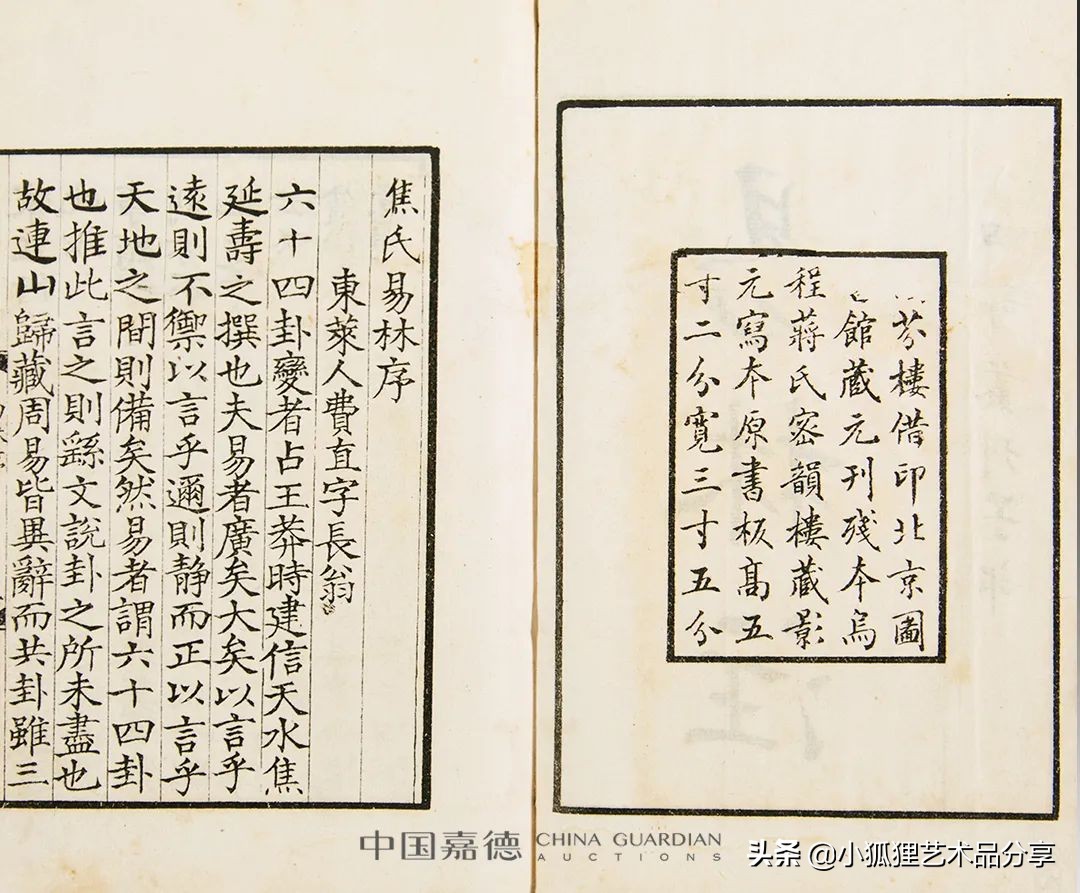 芬樓借印北京圖
館藏元刊殘本烏
程蔣氏密韻樓藏影
元寫本原書板高五
寸二分寬三寸五分
焦氏易林序
東萊人費直字長翁
六十四卦變者占王莽時建信天水焦
延壽之撰也夫易者廣矣大矣以言乎
遠則不禦以言乎邇則靜而正以言乎
天地之間則備矣然易者謂六十四卦
也推此言之則繇文說卦之所未盡也
故連山歸藏周易皆異辭而共卦雖三
中国嘉德 CHINA GUARDIAN
AUCTIONS
头条 @小狐狸艺术品分享